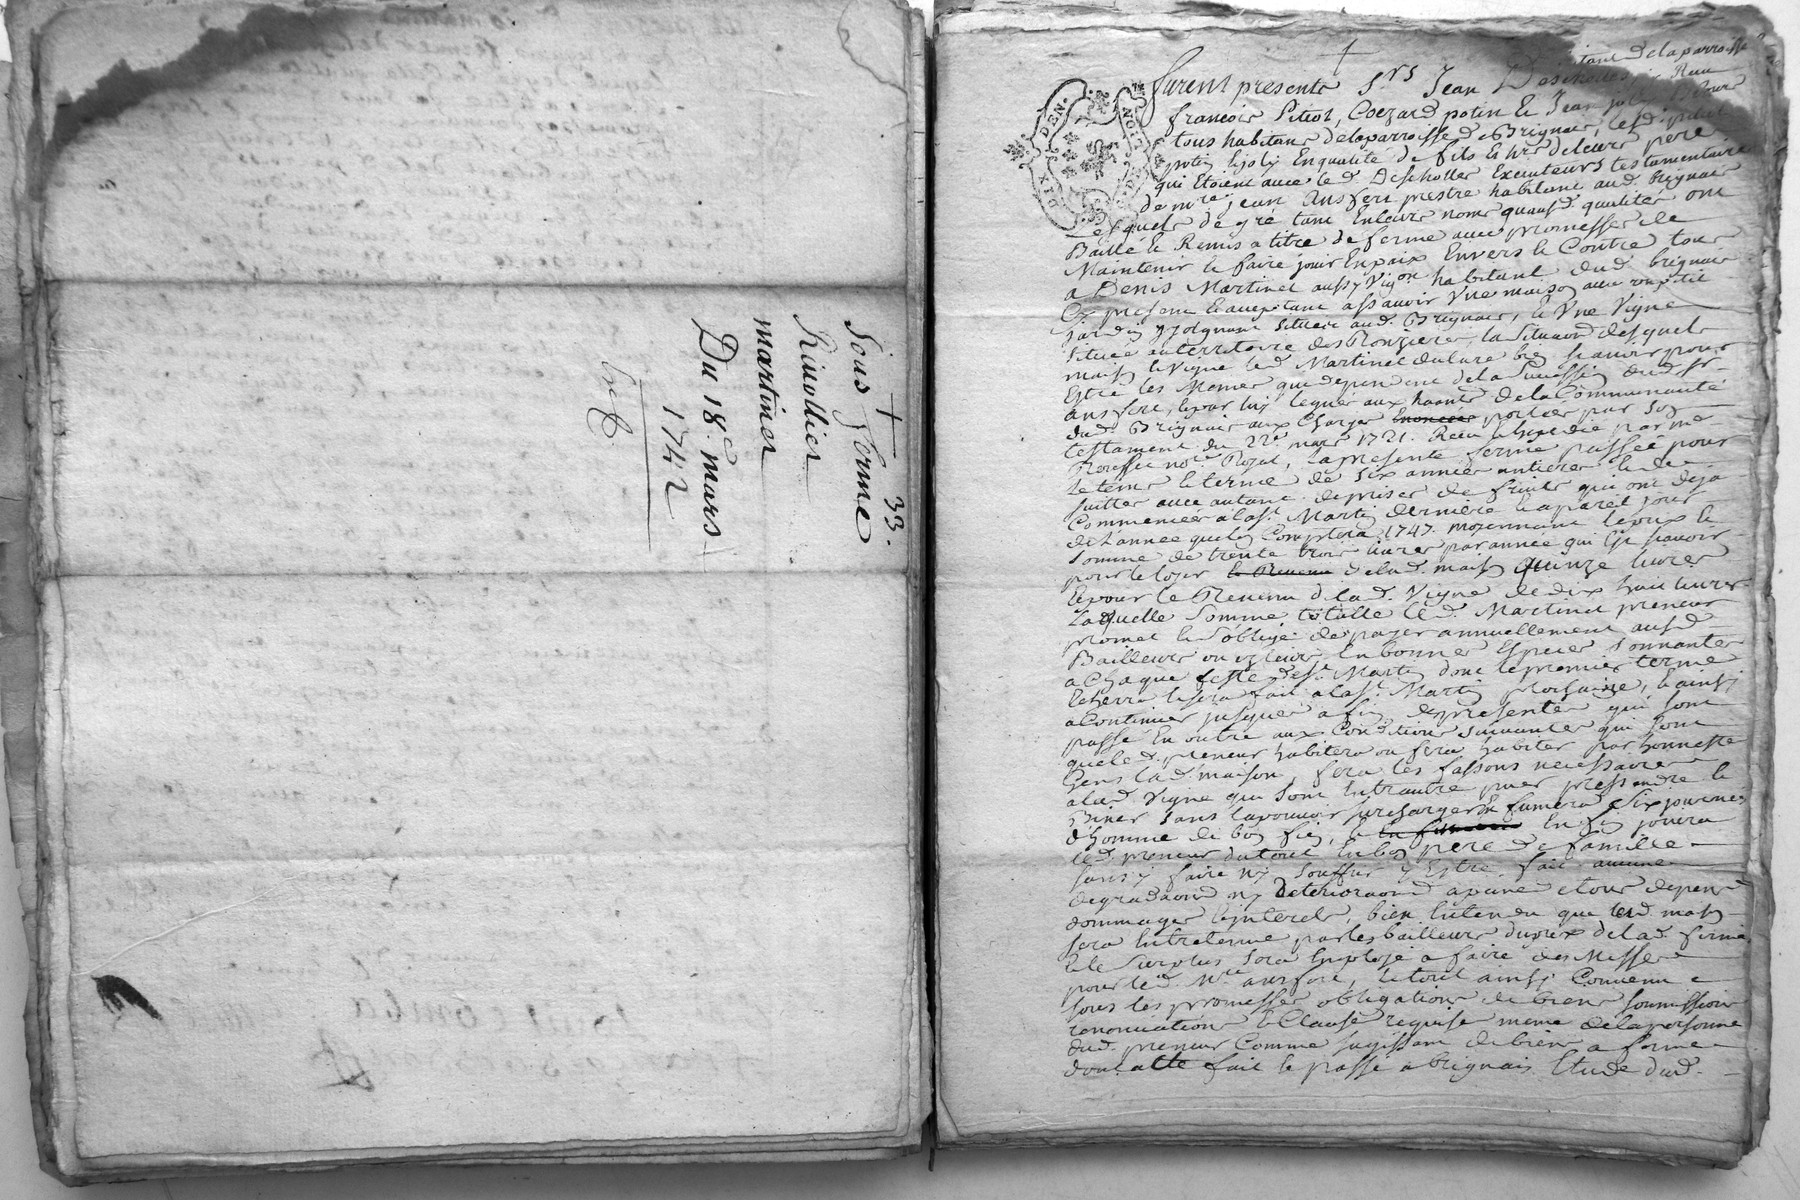 33.
+
Sous ferme
Rivollier
martinet
Du 18e mars
1742
+
furent presents Srs Jean Descholles habitant delaparroisse
francois Pitiot, Coezard potin & Jean joly
tous habitans delaparroisse de Brignais, lesd. pitiot
potin & joly En qualité de fils & hrs de leurs pere
qui Etoient avec led. Descholles Executeurs testamentaires
de mre jean Ansfere prestre habitant aud. brignais
lesquels de gre tant En leurs noms quausd. qualites ont
Baillé & Remis a titre de ferme avec promesse de
Maintenir & faire jouir En paix Envers & Contre tous
a Denis Martinet aussy Vigon habitant dud. brignais
Cy present & acceptant assavoir Une maison avec un petit
jardin y joignant Situés aud. Brignais, & Une Vigne
Située au territoire des Ronzieres, la Situaon desquels
maison & Vigne led. Martinet declare bien scavoir pour
Estre les Memes que dependent de la Succession dud. Sr
ansfere, & par luy legués aux haants de la Communauté
dud. Brignais aux Charges Enoncées portées par son
testament du 22e mars 1721. Recu & Expedié par me
notre Royal, la presente ferme passée pour
le tems & terme de Six années entieres & de
suitte avec autant de prises de fruits qui ont deja
Commencées a la St. Martin derniere & a pareil jour
de l'année que lon Comptera 1747. moyennant le prix &
Somme de trente trois livres par année qui Est scavoir
pour le loyer & Revenu de lad. maison quinze livres
& pour le Revenu de lad. Vigne de dix huit livres
Laquelle Somme totalle led. Martinet preneur
promet & s'oblige de payer annuellement ausd.
Bailleurs ou es leurs En bonnes Especes Sonnantes
a Chaque feste de St. Martin dont le premier terme
Echerra & sera fait a la St. Martin prochaine, & ainsy
a Continuer jusques a fin des presentes qui sont
passé En outre aux Conditions suivantes qui sont
que led. preneur habitera ou fera habiter par honneste
Gens lad. maison, fera les fassons necessaires
a lad. Vigne qui sont Entrautre
Biner sans la pouvoir surcharger & fumera Six journées
d'homme de bon fien, & En fin jouira
led. preneur du tout En bon pere de famille
sans y faire ny Souffrir y Estre fait aucune
degradaons ny deterioraons a peine de tous depens
dommages & interets, bien Entendu que lad. maison
sera Entretenue par les bailleurs du prix de lad. ferme
& le Surplus Sera Employé a faire des Messes
pour led. Mre ansfere, le tout ainsy Convenu
sous les promesses obligations de biens soumissions
renonciations & Clauses requises meme de la personne
dud. preneur Comme s'agissant de biens a ferme
dont acte fait & passé a brignais Etude dud.